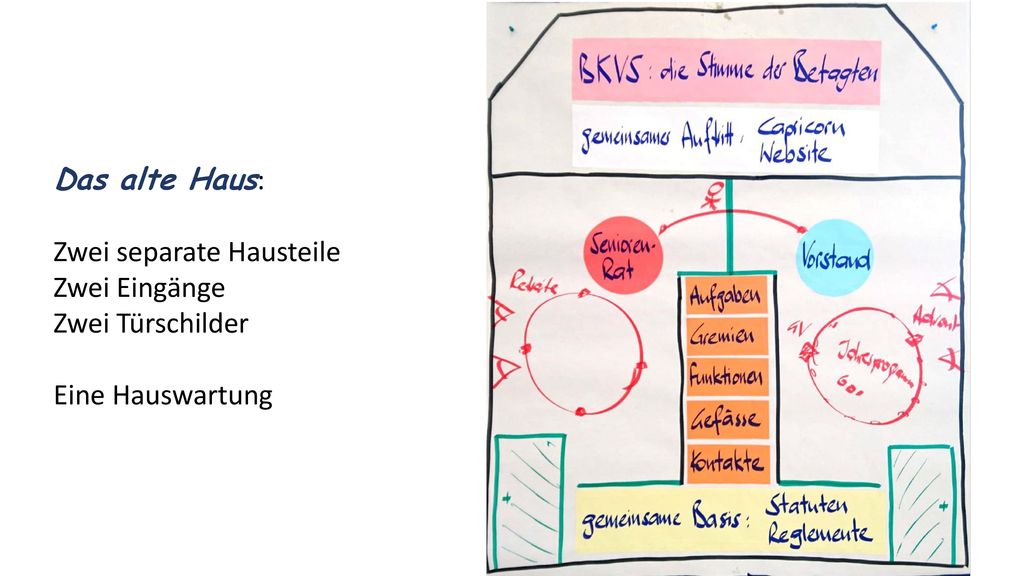 Das alte Haus:
Zwei separate Hausteile
Zwei Eingänge
Zwei Türschilder
Eine Hauswartung
BKVS: die Stimme der Betagten
gemeinsamer Auftritt:
Capricorn
Website
Senioren-
Rat
Vorstand
Retraite
Aufgaben
Gremien
Funktionen
Gefässe
Kontakte
GV
Advent
Jahresprogramm
60+
gemeinsame Basis:
Statuten
Reglemente